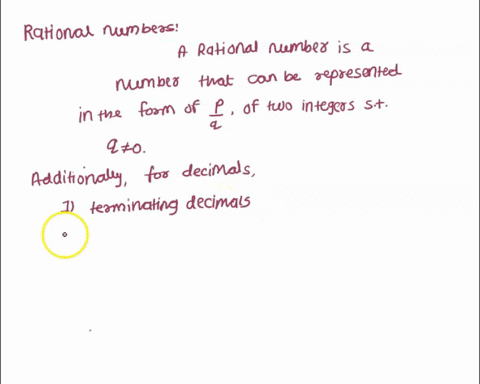 Rational numbers:
A Rational number is a
number that can be represented
in the form of p/q, of two integers s.t.
q≠0.
Additionally, for decimals,
1) terminating decimals